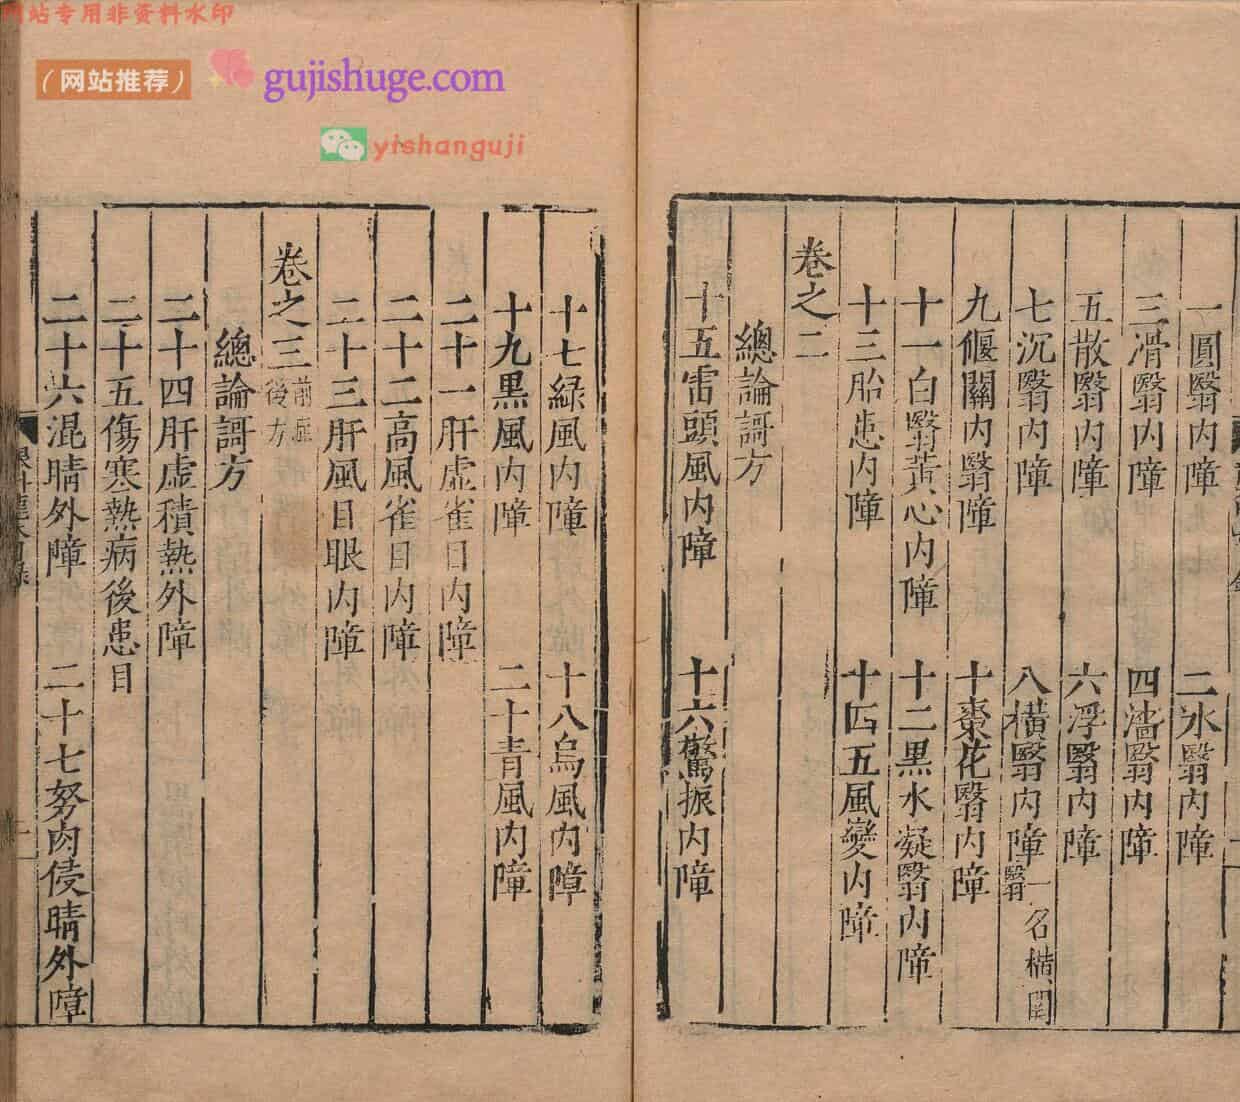 网站专用非资料水印
（网站推荐）
gujishuge.com
yishanguji
一圓翳内障　二氷翳内障
三滑翳内障　四濇翳内障
五散翳内障　六浮翳内障
七沉翳内障　八橫翳内障一名橫開翳
九偃關内翳障　十棗花翳内障
十一白翳黃心内障　十二黒水凝翳内障
十三胎患内障　十四五風變内障
卷之二
總論謌方
十五雷頭風内障　十六驚振内障
十七緑風内障　十八烏風内障
十九黒風内障　二十青風内障
二十一肝虚雀目内障
二十二高風雀目内障
二十三肝風目眼内障
卷之三前症後方
總論謌方
二十四肝虚積熱外障
二十五傷寒熱病後患目
二十六混睛外障　二十七努肉侵睛外障